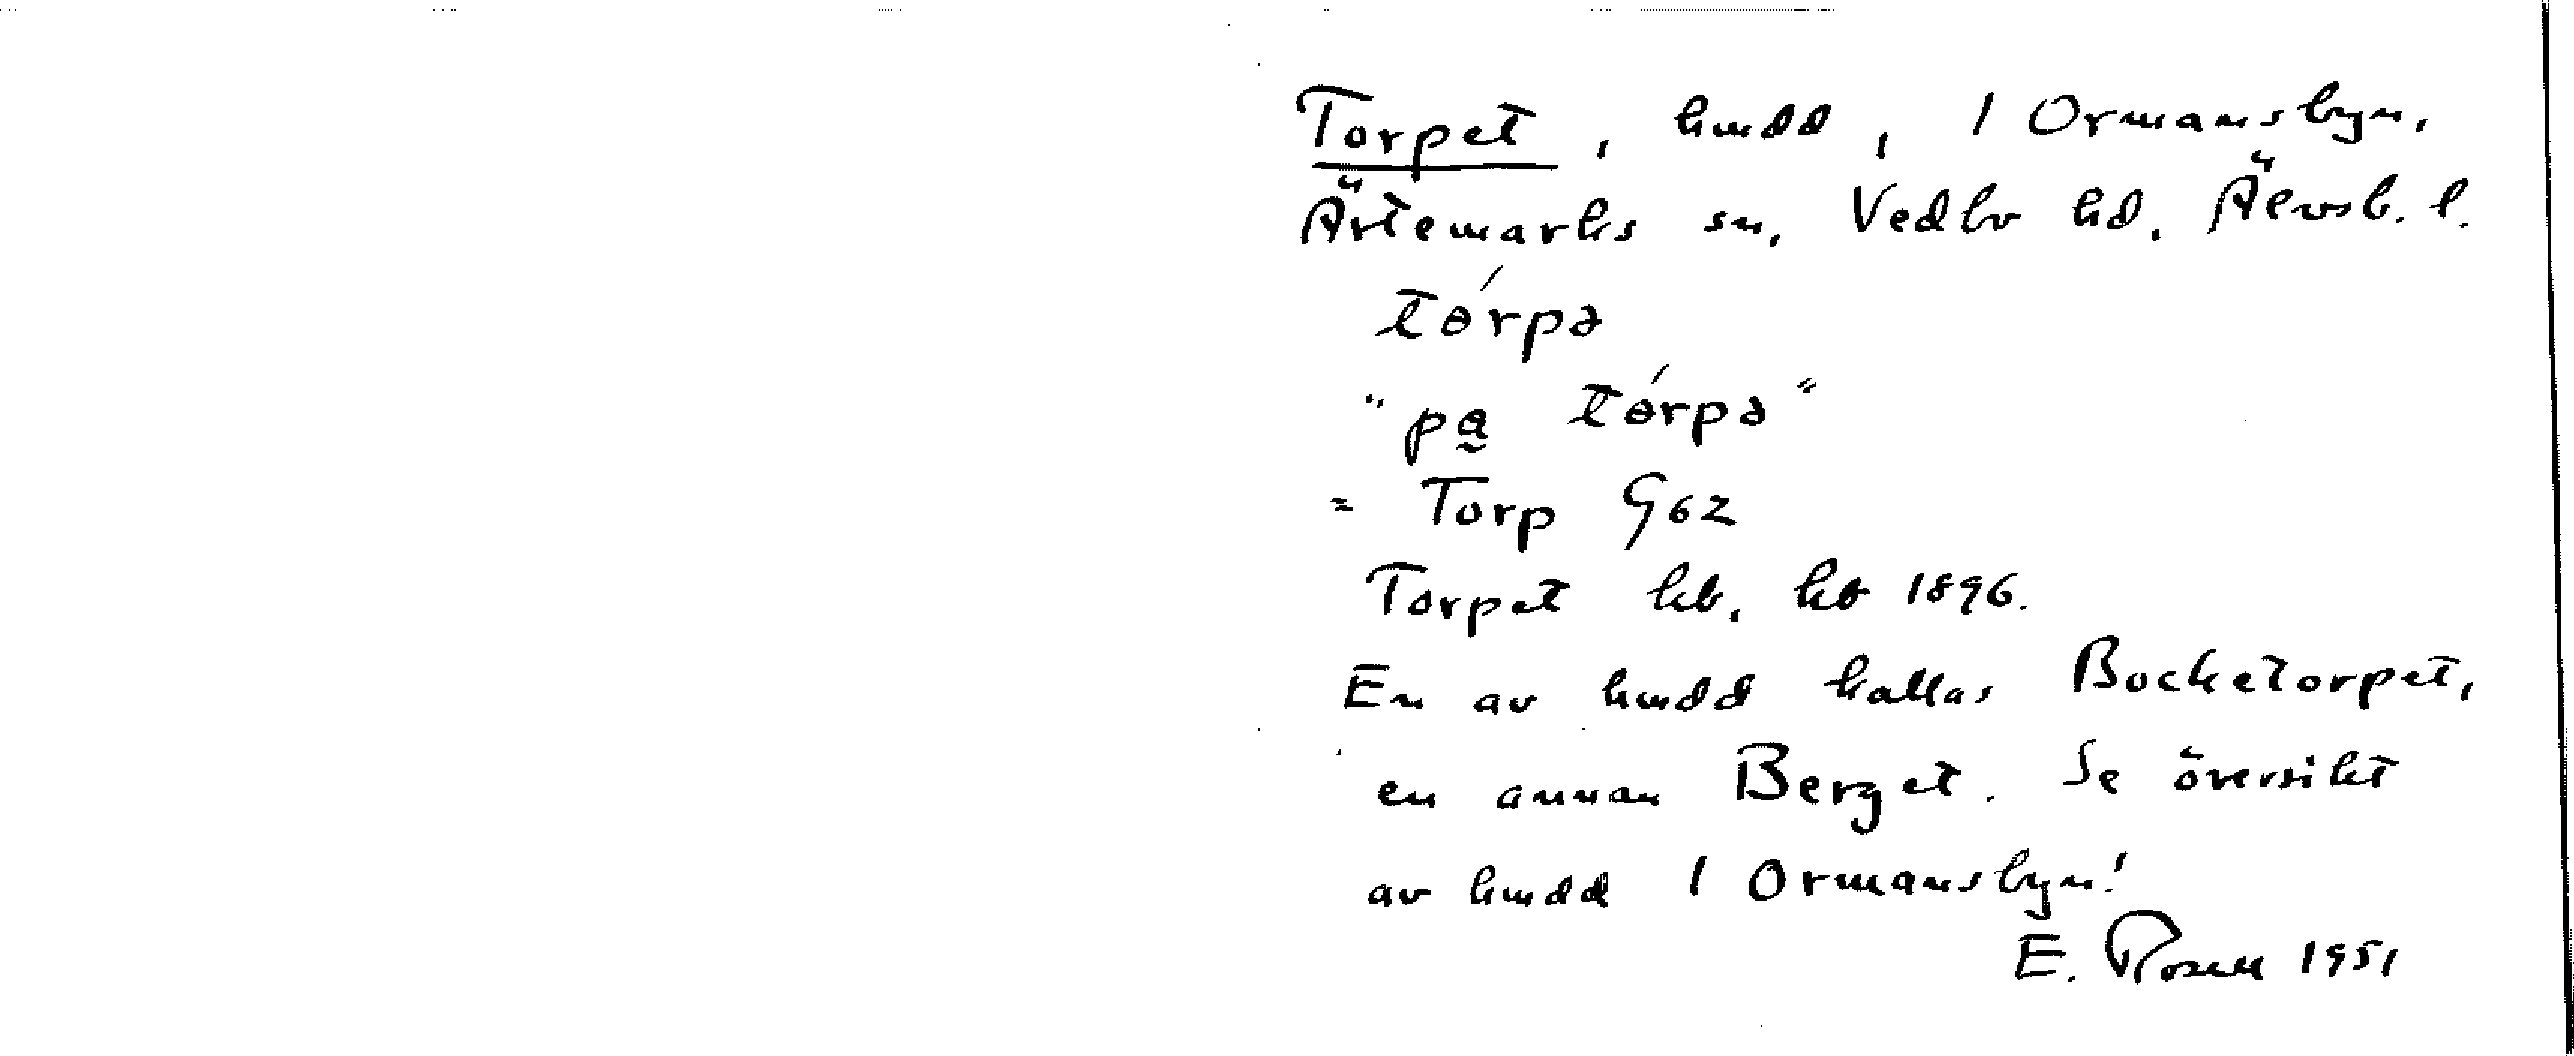 Torpet, hmdd, 1 Ormansbyn,
Ärtemarks sn, Vedbo hd, Älvsb. l.
tórpə
"pa tórpə"
= Torp G62
Torpet hb, kb 1896.
En av hmdd kallas Bocketorpet,
en annan Berget. Se översikt
av hmdd 1 Ormansbyn!
E. Rosell 1951